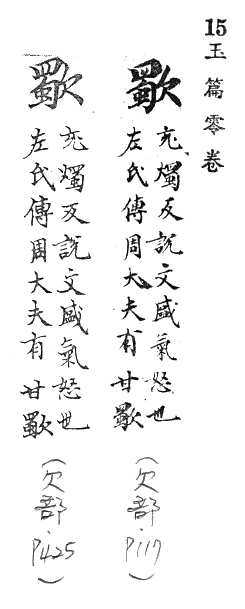 15玉篇零卷
歜
充燭反說文盛氣怒也
左氏傳周大夫有甘歜
(欠部、P117)
歜
充燭反說文盛氣怒也
左氏傳周大夫有甘歜
(欠部、P425)